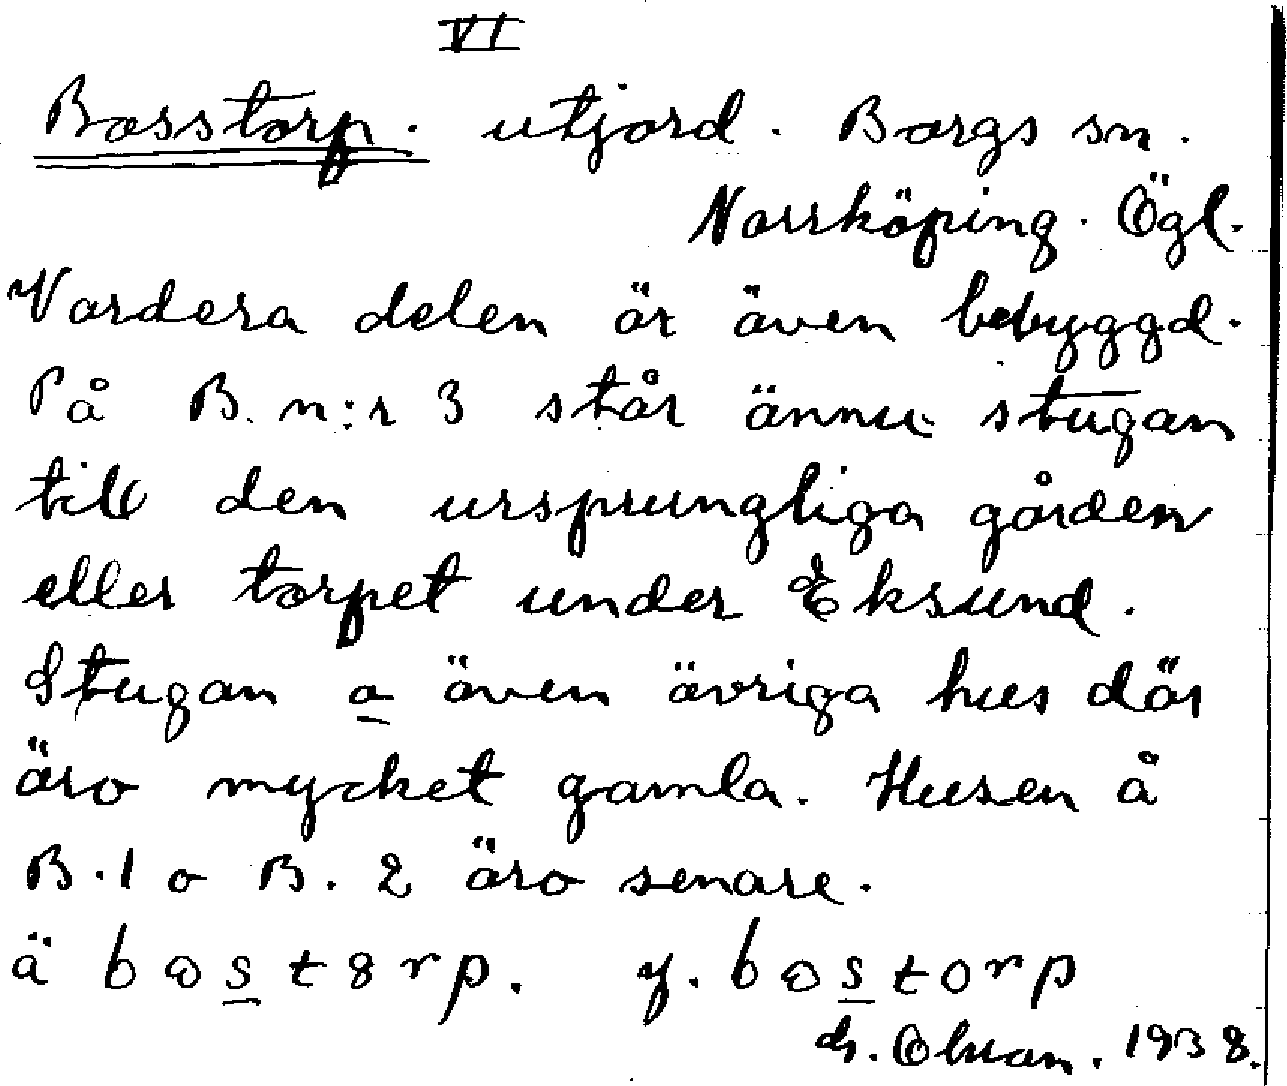 VI
Bosstorp. utjord. Borgs sn.
Norrköping. Ögl.
Vardera delen är även bebyggd.
På B. n:r 3 står ännu stugan
till den ursprungliga gården
eller torpet under Eksund.
Stugan o även övriga hus där
äro mycket gamla. Husen å
B. 1 o B. 2 äro senare.
ä bɷstɞrp. y. bɷstorp
1938.